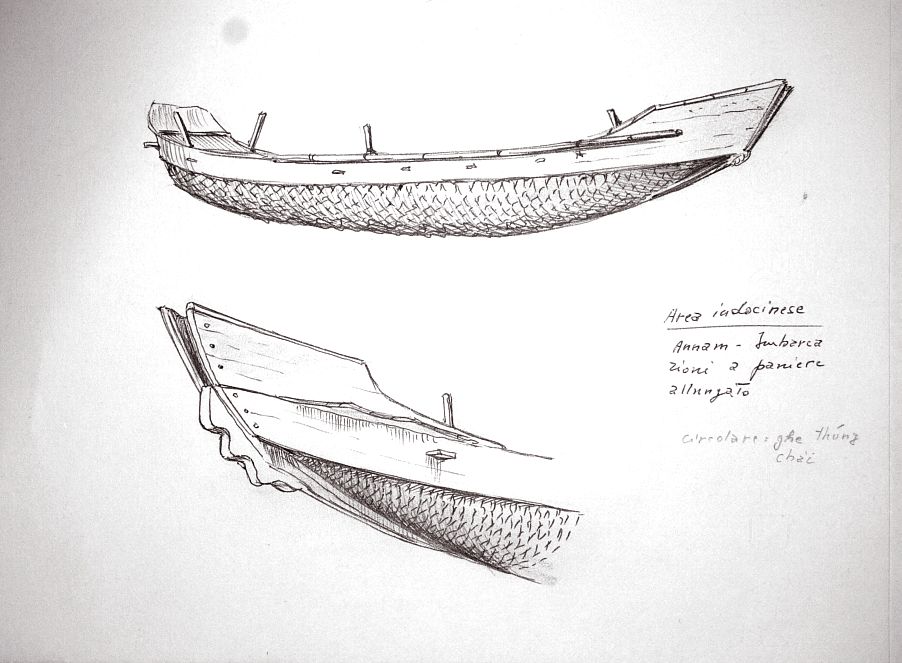 Area indocinese
Annam - Imbarca
zioni a paniere
allungato
circolare: ghe thúng
chài